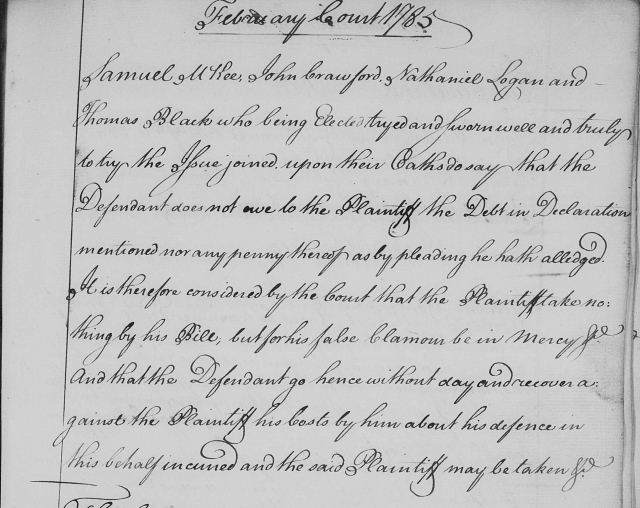 February Court 1785
Samuel McKee, John Crawford, Nathaniel Logan and
Thomas Black who being Elected tryed and sworn well and truly
to try the Issue joined upon their Oaths do say that the
Defendant does not owe to the Plaintiff the Debt in Declaration
mentioned nor any penny thereof as by pleading he hath alledged.
It is therefore considered by the Court that the Plaintiff take no:
thing by his Bill, but for his false Clamour be in Mercy &c
And that the Defendant go hence without day and recover a:
gainst the Plaintiff his Costs by him about his defence in
this behalf incured and the said Plaintiff may be taken &c